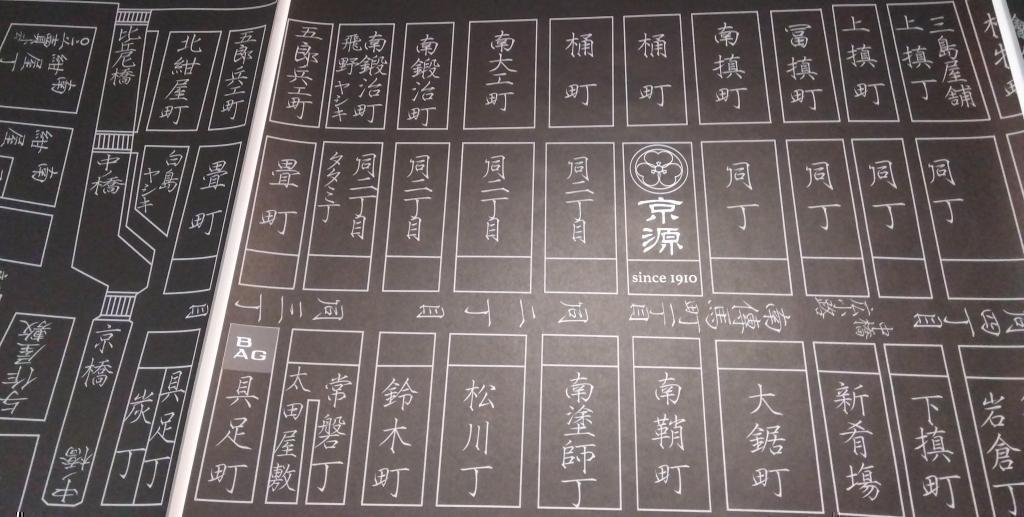 比丘橋
北紺屋町
五郎兵エ町
五郎兵エ町
南鍛冶町
飛野ヤシキ
南鍛冶町
南大工町
桶町
桶町
南槙町
冨槙町
上槙町
上槙丁
三島屋舗
中橋
白島ヤシキ
畳町
畳町
同二丁目
タタミ丁
同二丁目
同二丁目
同二丁目
京源
since 1910
同丁
同丁
同丁
同丁
南傳馬町一丁目
中橋広小路
京橋
炭丁
具足丁
B
AG
具足町
太田屋敷
常磐丁
鈴木町
松川丁
南塗師丁
南鞘町
大鋸町
新肴場
下槙町
岩倉丁
中橋